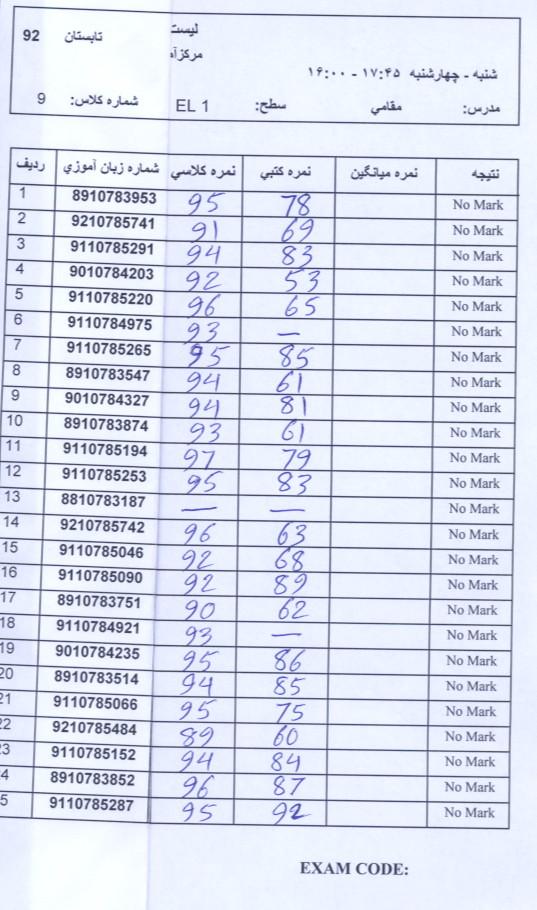 لیست
تابستان 92
مرکزآه
شنبه - چهارشنبه ۱۷:۴۵ - ۱۶:۰۰
مدرس: مقامي سطح: EL 1 شماره کلاس: 9
ردیف شماره زبان آموزي نمره کلاسي نمره کتبي نمره میانگین نتیجه
1 8910783953 95 78 No Mark
2 9210785741 91 69 No Mark
3 9110785291 94 83 No Mark
4 9010784203 92 53 No Mark
5 9110785220 96 65 No Mark
6 9110784975 93 — No Mark
7 9110785265 95 85 No Mark
8 8910783547 94 61 No Mark
9 9010784327 94 81 No Mark
10 8910783874 93 61 No Mark
11 9110785194 97 79 No Mark
12 9110785253 95 83 No Mark
13 8810783187 — — No Mark
14 9210785742 96 63 No Mark
15 9110785046 92 68 No Mark
16 9110785090 92 89 No Mark
17 8910783751 90 62 No Mark
18 9110784921 93 — No Mark
19 9010784235 95 86 No Mark
20 8910783514 94 85 No Mark
21 9110785066 95 75 No Mark
22 9210785484 89 60 No Mark
23 9110785152 94 84 No Mark
4 8910783852 96 87 No Mark
5 9110785287 95 92 No Mark
EXAM CODE: